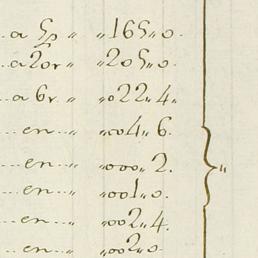 ..a 5p " "165"0.
..a 20r " "205"0.
..a 6r " "022"4.
....en..." "004"6.
....en..." "000"2.
....en..." "001"0.
....en..." "002"4.
....en..." "002"0.